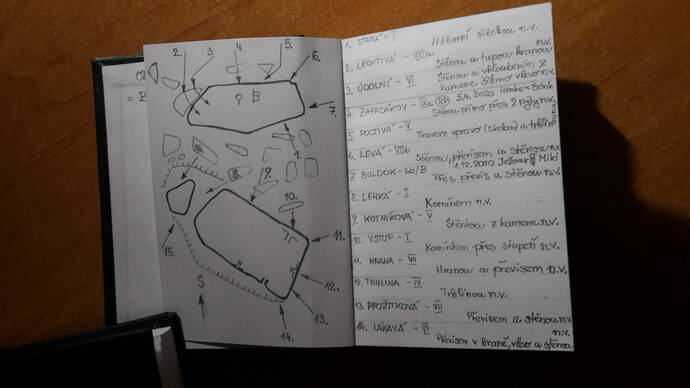 2.
3.
4.
5.
6.
7.
1.
16.
8.
9.
10.
11.
12.
13.
14.
15.
S
1. STARÁ - I
Náhorní stěnkou n.v.
2. LEGITIVÁ - VIIIa
Stěnou a tupou hranou n.v.
3. ÚDOLNÍ - VI
Stěnou a vhloubením z
kamene šikmo vlevo n.v.
4. ZAPADÁKOV - IXa RP 5.4.2020
Stěnou přímo přes 2 nýty n.v.
5. POCTIVÁ - V
Traverz vpravo (skobou) a trhlinou n.v.
6. LEVÁ - VIIb
Stěnou, převisem a stěnou n.v.
7. BULDOK - 6b/B 1.12.2010
Přes převis a stěnou n.v.
8. LEHKÁ - I
Komínem n.v.
9. KOTNÍKOVÁ - V
Stěnkou z kamene n.v.
10. VSTUP - I
Komínkem přes stupeň n.v.
11. HRANA - VII
Hranou a převisem n.v.
12. TRHLINA - IV
Trhlinou n.v.
13. PROŽITKOVÁ - VII
Převisem a stěnou n.v.
14. LÁKAVÁ - VI
Převisem v hraně, vlevo a stěnou n.v.